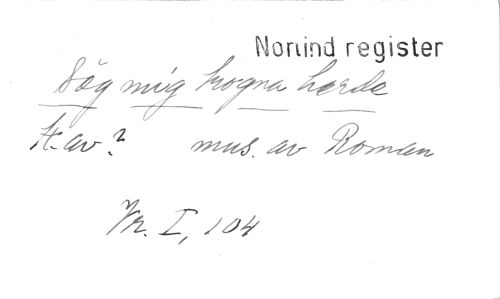 Norlind register
Säg mig trogna herde
T. av? mus. av Roman
Nr. I, 104